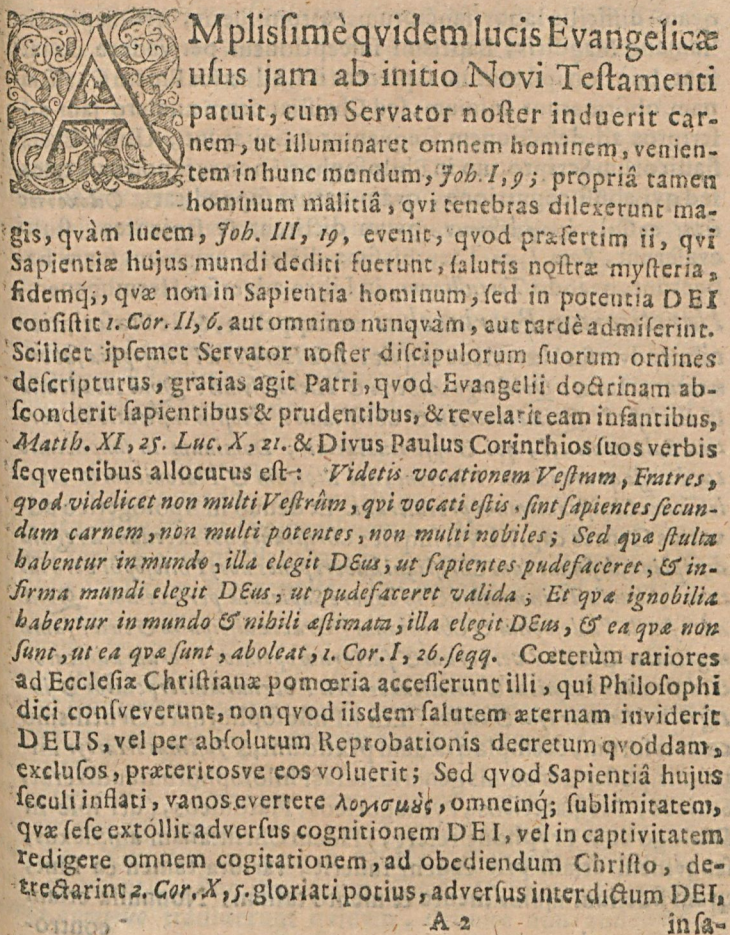 AMpliſſimè qvidem lucis Evangelicæ
uſus jam ab initio Novi Teſtamenti
patuit, cum Servator noſter induerit car-
nem, ut illuminaret omnem hominem, venien-
tem in hunc mundum, Joh. I, 9; propriâ tamen
hominum malitiâ, qvi tenebras dilexerunt ma-
gis, qvàm lucem, Joh. III, 19, evenit, qvod præſertim ii, qvi
Sapientiæ hujus mundi dediti fuerunt, ſalutis noſtræ myſteria,
fidemq́;, qvæ non in Sapientia hominum, ſed in potentia DEI
conſiſtit 1. Cor. II, 6. aut omnino nunqvàm, aut tardè admiſerint.
Scilicet ipſemet Servator noſter diſcipulorum ſuorum ordines
deſcripturus, gratias agit Patri, qvod Evangelii doctrinam ab-
ſconderit ſapientibus & prudentibus, & revelarit eam infantibus,
Matth. XI, 25. Luc. X, 21. & Divus Paulus Corinthios ſuos verbis
ſeqventibus allocutus eſt: Videtis vocationem Veſtram, Fratres,
qvod videlicet non multi Veſtrûm, qvi vocati eſtis, ſint ſapientes ſecun-
dum carnem, non multi potentes, non multi nobiles; Sed qvæ ſtulta
habentur in mundo, illa elegit DEus, ut ſapientes pudefaceret, & in-
firma mundi elegit DEus, ut pudefaceret valida; Et qvæ ignobilia
habentur in mundo & nihili æſtimata, illa elegit DEus, & ea qvæ non
ſunt, ut ea qvæ ſunt, aboleat, 1. Cor. I, 26. ſeqq. Cœterùm rariores
ad Eccleſiæ Chriſtianæ pomœria acceſſerunt illi, qui Philoſophi
dici conſveverunt, non qvod iisdem ſalutem æternam inviderit
DEUS, vel per abſolutum Reprobationis decretum qvoddam,
excluſos, præteritosve eos voluerit; Sed qvod Sapientiâ hujus
ſeculi inflati, vanos evertere λογισμȣ̀ς, omnemq́; ſublimitatem,
qvæ ſeſe extollit adverſus cognitionem DEI, vel in captivitatem
redigere omnem cogitationem, ad obediendum Chriſto, de-
trectarint 2. Cor. X, 5. gloriati potius, adverſus interdictum DEI,
A 2 in ſa-